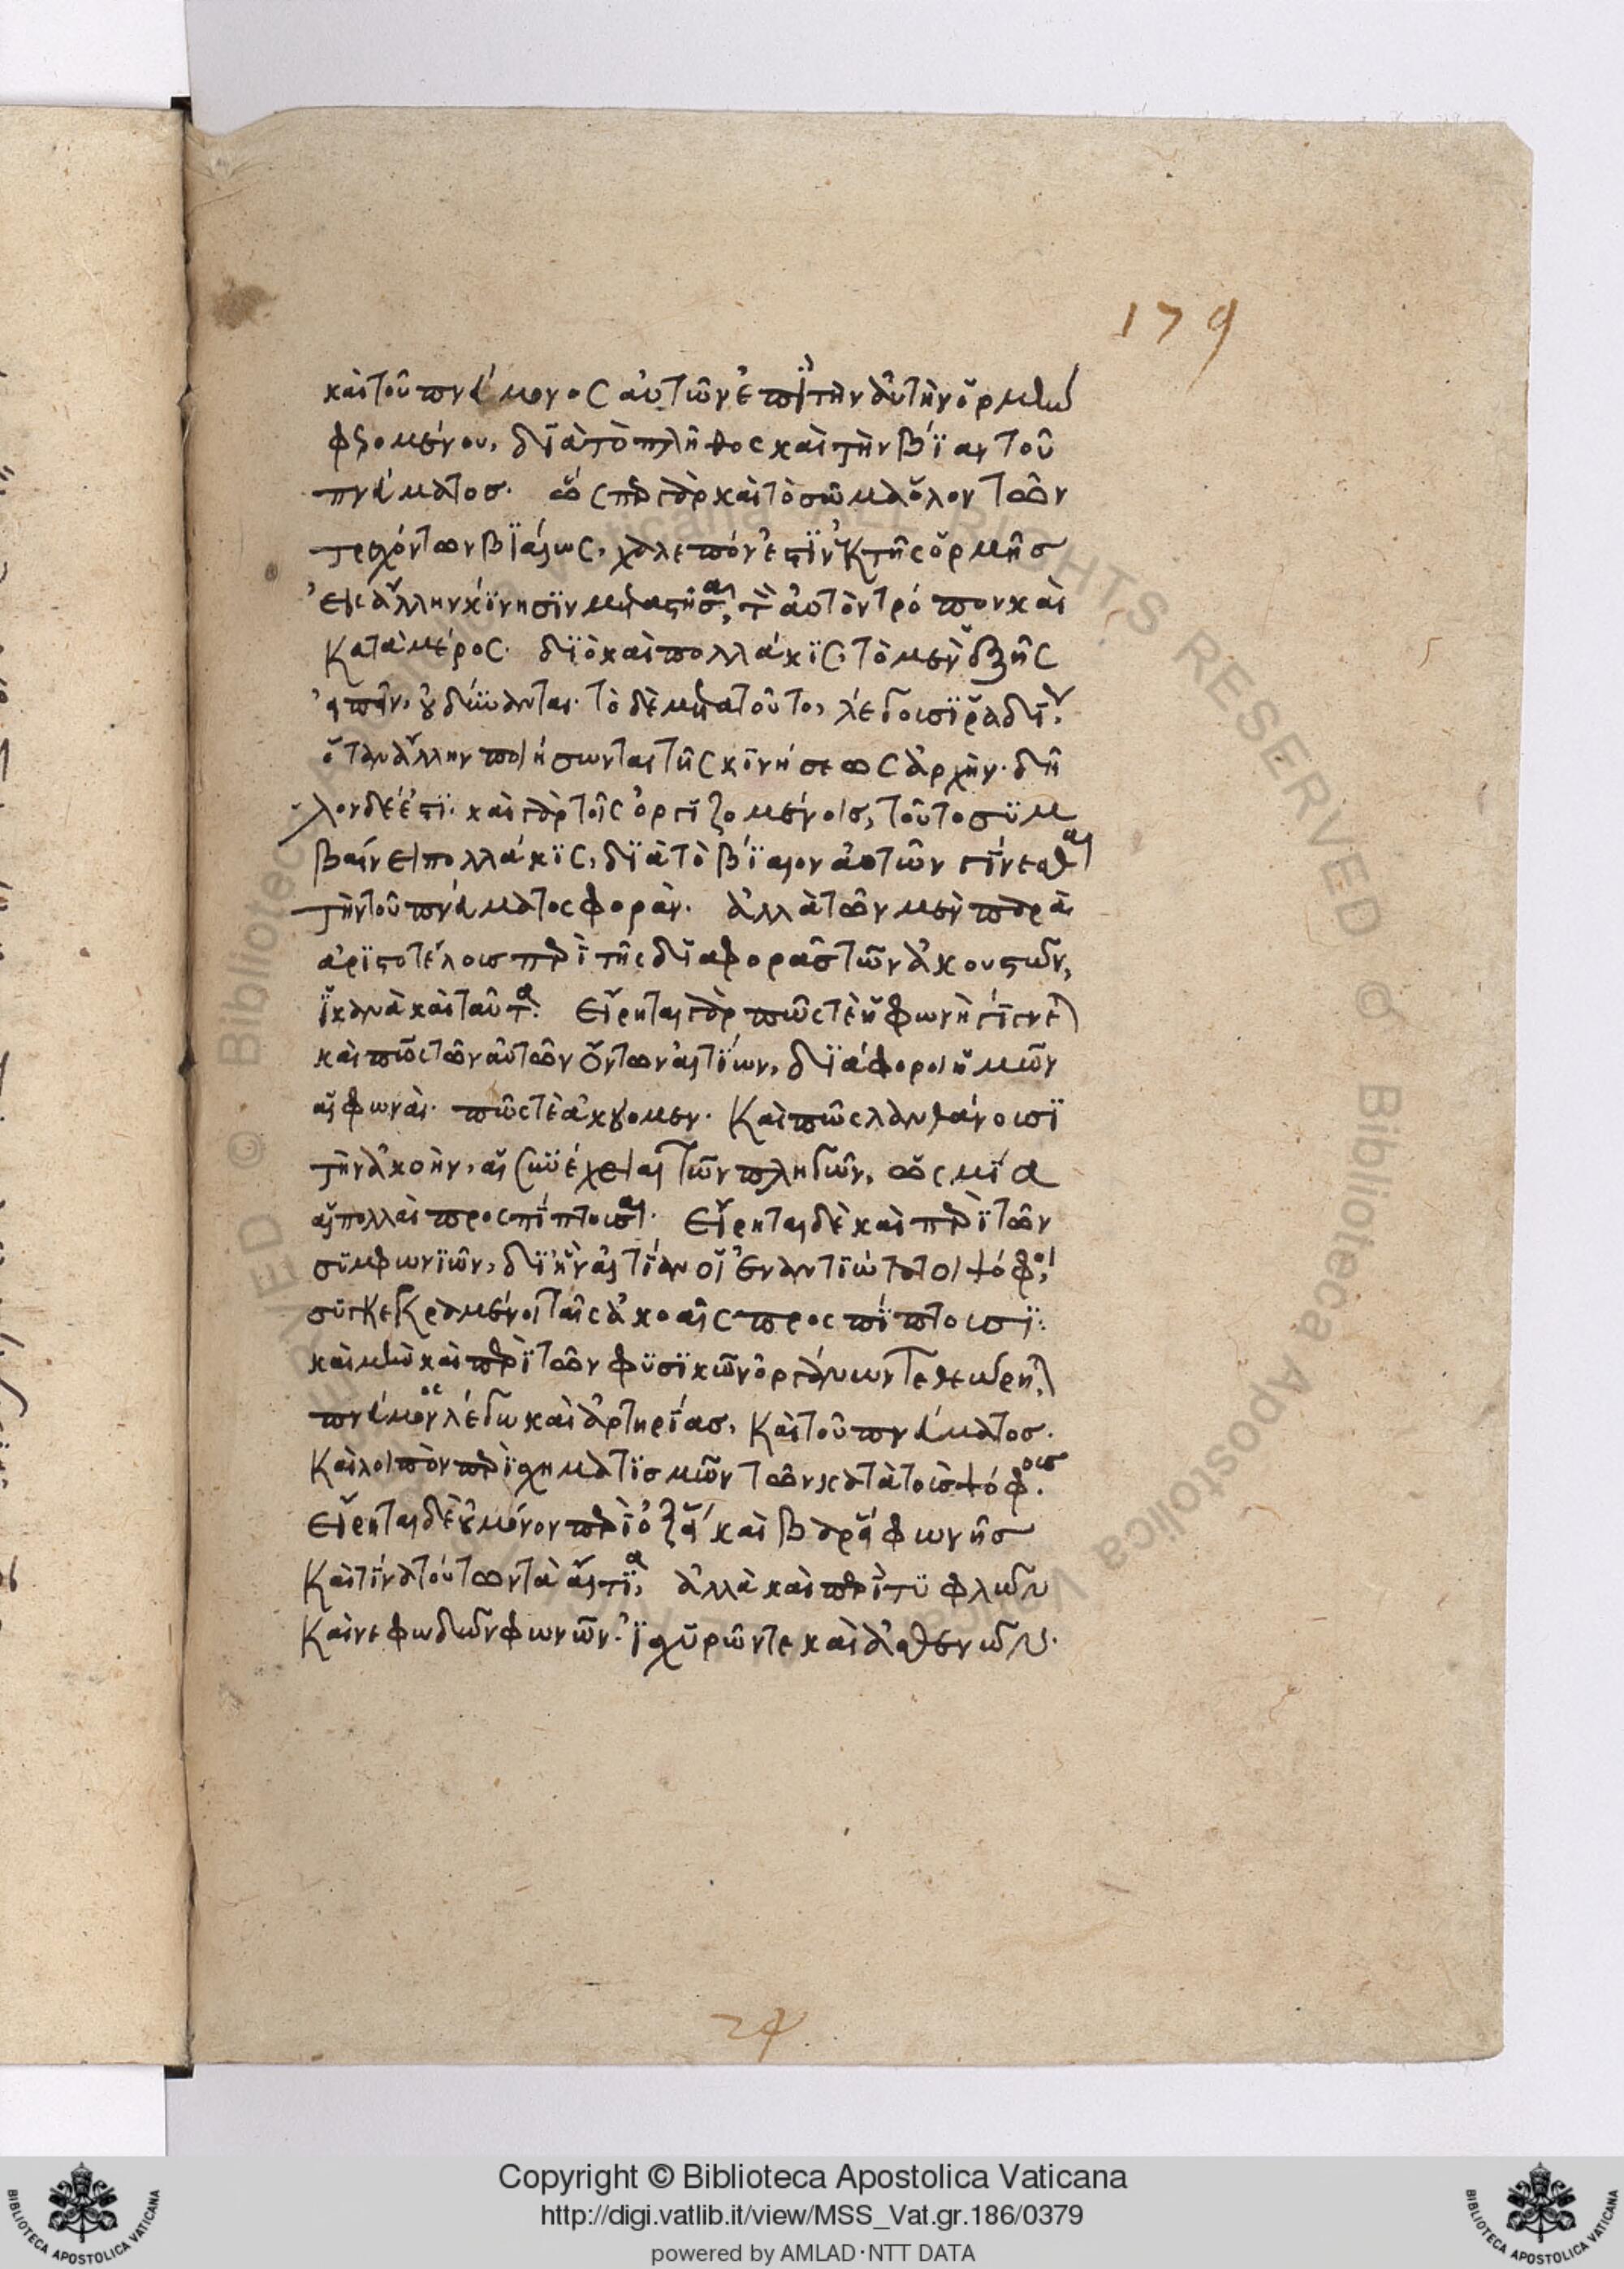 179
καὶ τοῦ πνεύμονος αὐτῶν ἐπὶ τὴν αὐτὴν ὁρμὴν
φερομένου, διὰ τὸ πλῆθος καὶ τὴν βίαν τοῦ
πνεύματος. ὥσπερ γὰρ καὶ τὸ σῶμα ὅλον τῶν
τρεχόντων βιαίως, χαλεπόν ἐστιν ἐκ τῆς ὁρμῆς
εἰς ἄλλην κίνησιν μεταστῆσαι, τὸν αὐτὸν τρόπον καὶ
κατὰ μέρος. διὸ καὶ πολλάκις, τὸ μὲν ἑξῆς
εἰπεῖν, οὐ δύνανται. τὸ δὲ μετὰ τοῦτο, λέγουσι ῥᾳδίως,
ὅταν ἄλλην ποιήσωνται τῆς κινήσεως ἀρχήν. δῆ
λον δέ ἐστι. καὶ γὰρ τοῖς ὀργιζομένοις, τοῦτο συμ
βαίνει πολλάκις, διὰ τὸ βίαιον αὐτῶν γίνεσθαι
τὴν τοῦ πνεύματος φοράν. ἀλλὰ τῶν μὲν παρὰ
ἀριστοτέλους περὶ τῆς διαφορᾶς τῶν ἀκουστῶν,
ἱκανὰ καὶ ταῦτα. εἴρηται γὰρ πῶς τὲ ἡ φωνὴ γίγνεται
καὶ πῶς τῶν αὐτῶν ὄντων αἰτίων, διάφοροι ἡμῶν
αἱ φωναί. πῶς τὲ ἀκούομεν. καὶ πῶς λανθάνουσι
τὴν ἀκοὴν, αἱ συνέχειαι τῶν πληγῶν, ὡς μία
αἱ πολλαὶ προσπίπτουσαι. εἴρηται δὲ καὶ περὶ τῶν
συμφωνιῶν, δι' ἣν αἰτίαν οἱ ἐναντιώτατοι ψόφοι,
συγκεκραμένοι ταῖς ἀκοαῖς προσπίπτουσι.
καὶ μὴν καὶ περὶ τῶν φυσικῶν ὀργάνων τεθεώρηται,
πνεύμονος λέγω καὶ ἀρτηρίας, καὶ τοῦ πνεύματος.
καὶ λοιπὸν περὶ σχηματισμῶν τῶν κατὰ τοὺς ψόφους.
εἴρηται δὲ οὐ μόνον περὶ ὀξείας καὶ βαρείας φωνῆς
καὶ τίνα τούτων τὰ αἴτια, ἀλλὰ καὶ περὶ τυφλῶν
καὶ νεφωδῶν φωνῶν. ἰσχυρῶν τε καὶ ἀσθενῶν.
Copyright © Biblioteca Apostolica Vaticana
http://digi.vatlib.it/view/MSS_Vat.gr.186/0379
powered by AMLAD·NTT DATA